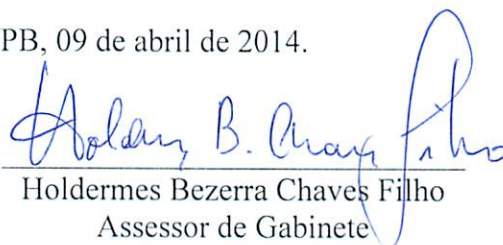 PB, 09 de abril de 2014.
Holdermes B. Chaves Filho
Holdermes Bezerra Chaves Filho
Assessor de Gabinete